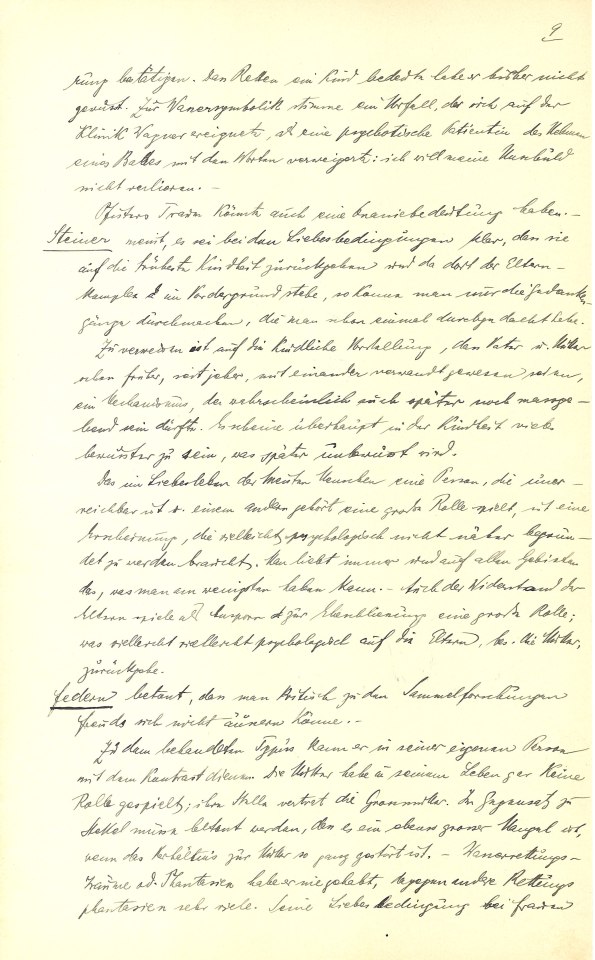 9
rung betätigen. Das Retten ein Kind bedeute habe er bisher nicht
gewusst. Zur Wassersymbolik stimme ein Vorfall, der sich auf der
Klinik Wagner ereignete, als eine psychotische Patientin das Nehmen
eines Bades mit den Worten verweigerte: ich will meine Unschuld
nicht verlieren. -
Pfisters Traum könnte auch eine Onaniebedeutung haben. -
Steiner meint, es sei bei den Liebesbedingungen klar, dass sie
auf die früheste Kindheit zurückgehen und da dort der Eltern-
komplex im Vordergrund stehe, so könne man nur die Gedanken-
gänge durchmachen, die man schon einmal durchgedacht habe.
Zu verweisen ist auf die kindliche Vorstellung, dass Vater u. Mutter
schon früher, seit jeher, mit einander verwandt gewesen seien,
ein Mechanismus, der wahrscheinlich auch später noch massge-
bend sein dürfte. Es scheine überhaupt in der Kindheit vieles
bewusster zu sein, was später unbewusst wird.
Dass im Liebesleben der meisten Menschen eine Person, die uner-
reichbar ist u. einem andern gehört eine grosse Rolle spielt, ist eine
Erscheinung, die vielleicht psychologisch nicht näher begrün-
det zu werden braucht. Man liebt immer und auf allen Gebieten
das, was man am wenigsten haben kann. - Auch der Widerstand der
Eltern spiele als Ansporn zur Eheschliessung eine grosse Rolle;
was vielleicht vielleicht psychologisch auf die Eltern, bes. die Mutter,
zurückgehe.
Federn betont, dass man kritisch zu den Sammelforschungen
Freuds sich nicht äussern könne. -
Zu dem behandelten Typus kann er in seiner eigenen Person
mit dem Kontrast dienen. Die Mutter habe in seinem Leben gar keine
Rolle gespielt; ihre Stelle vertrat die Grossmutter. Im Gegensatz zu
Stekel müsse betont werden, dass es ein ebenso grosser Mangel ist,
wenn das Verhältnis zur Mutter so ganz gestört ist. - Wasserrettungs-
träume od. Phantasien habe er nie gehabt, dagegen andere Rettungs
phantasien sehr viele. Seine Liebesbedingung bei Frauen